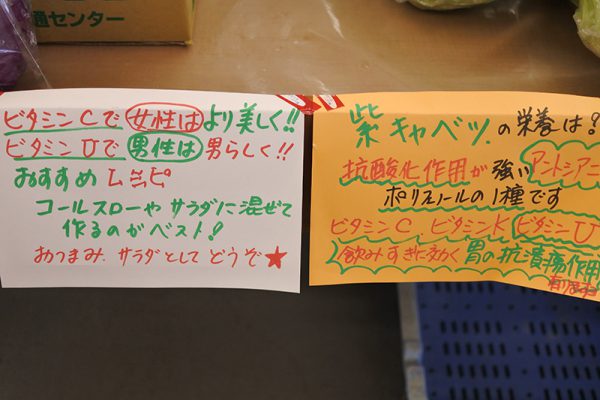 通センター
ビタミンCで女性はより美しく!!
ビタミンUで男性は男らしく!!
おすすめレシピ
コールスローやサラダに混ぜて
作るのがベスト!
おつまみ、サラダとしてどうぞ★
紫キャベツの栄養は?
抗酸化作用が強いアントシアニ
ポリフェノールの1種です
ビタミンC、ビタミンK、ビタミンU
飲みすぎに効く胃の抗潰瘍作用
有ります